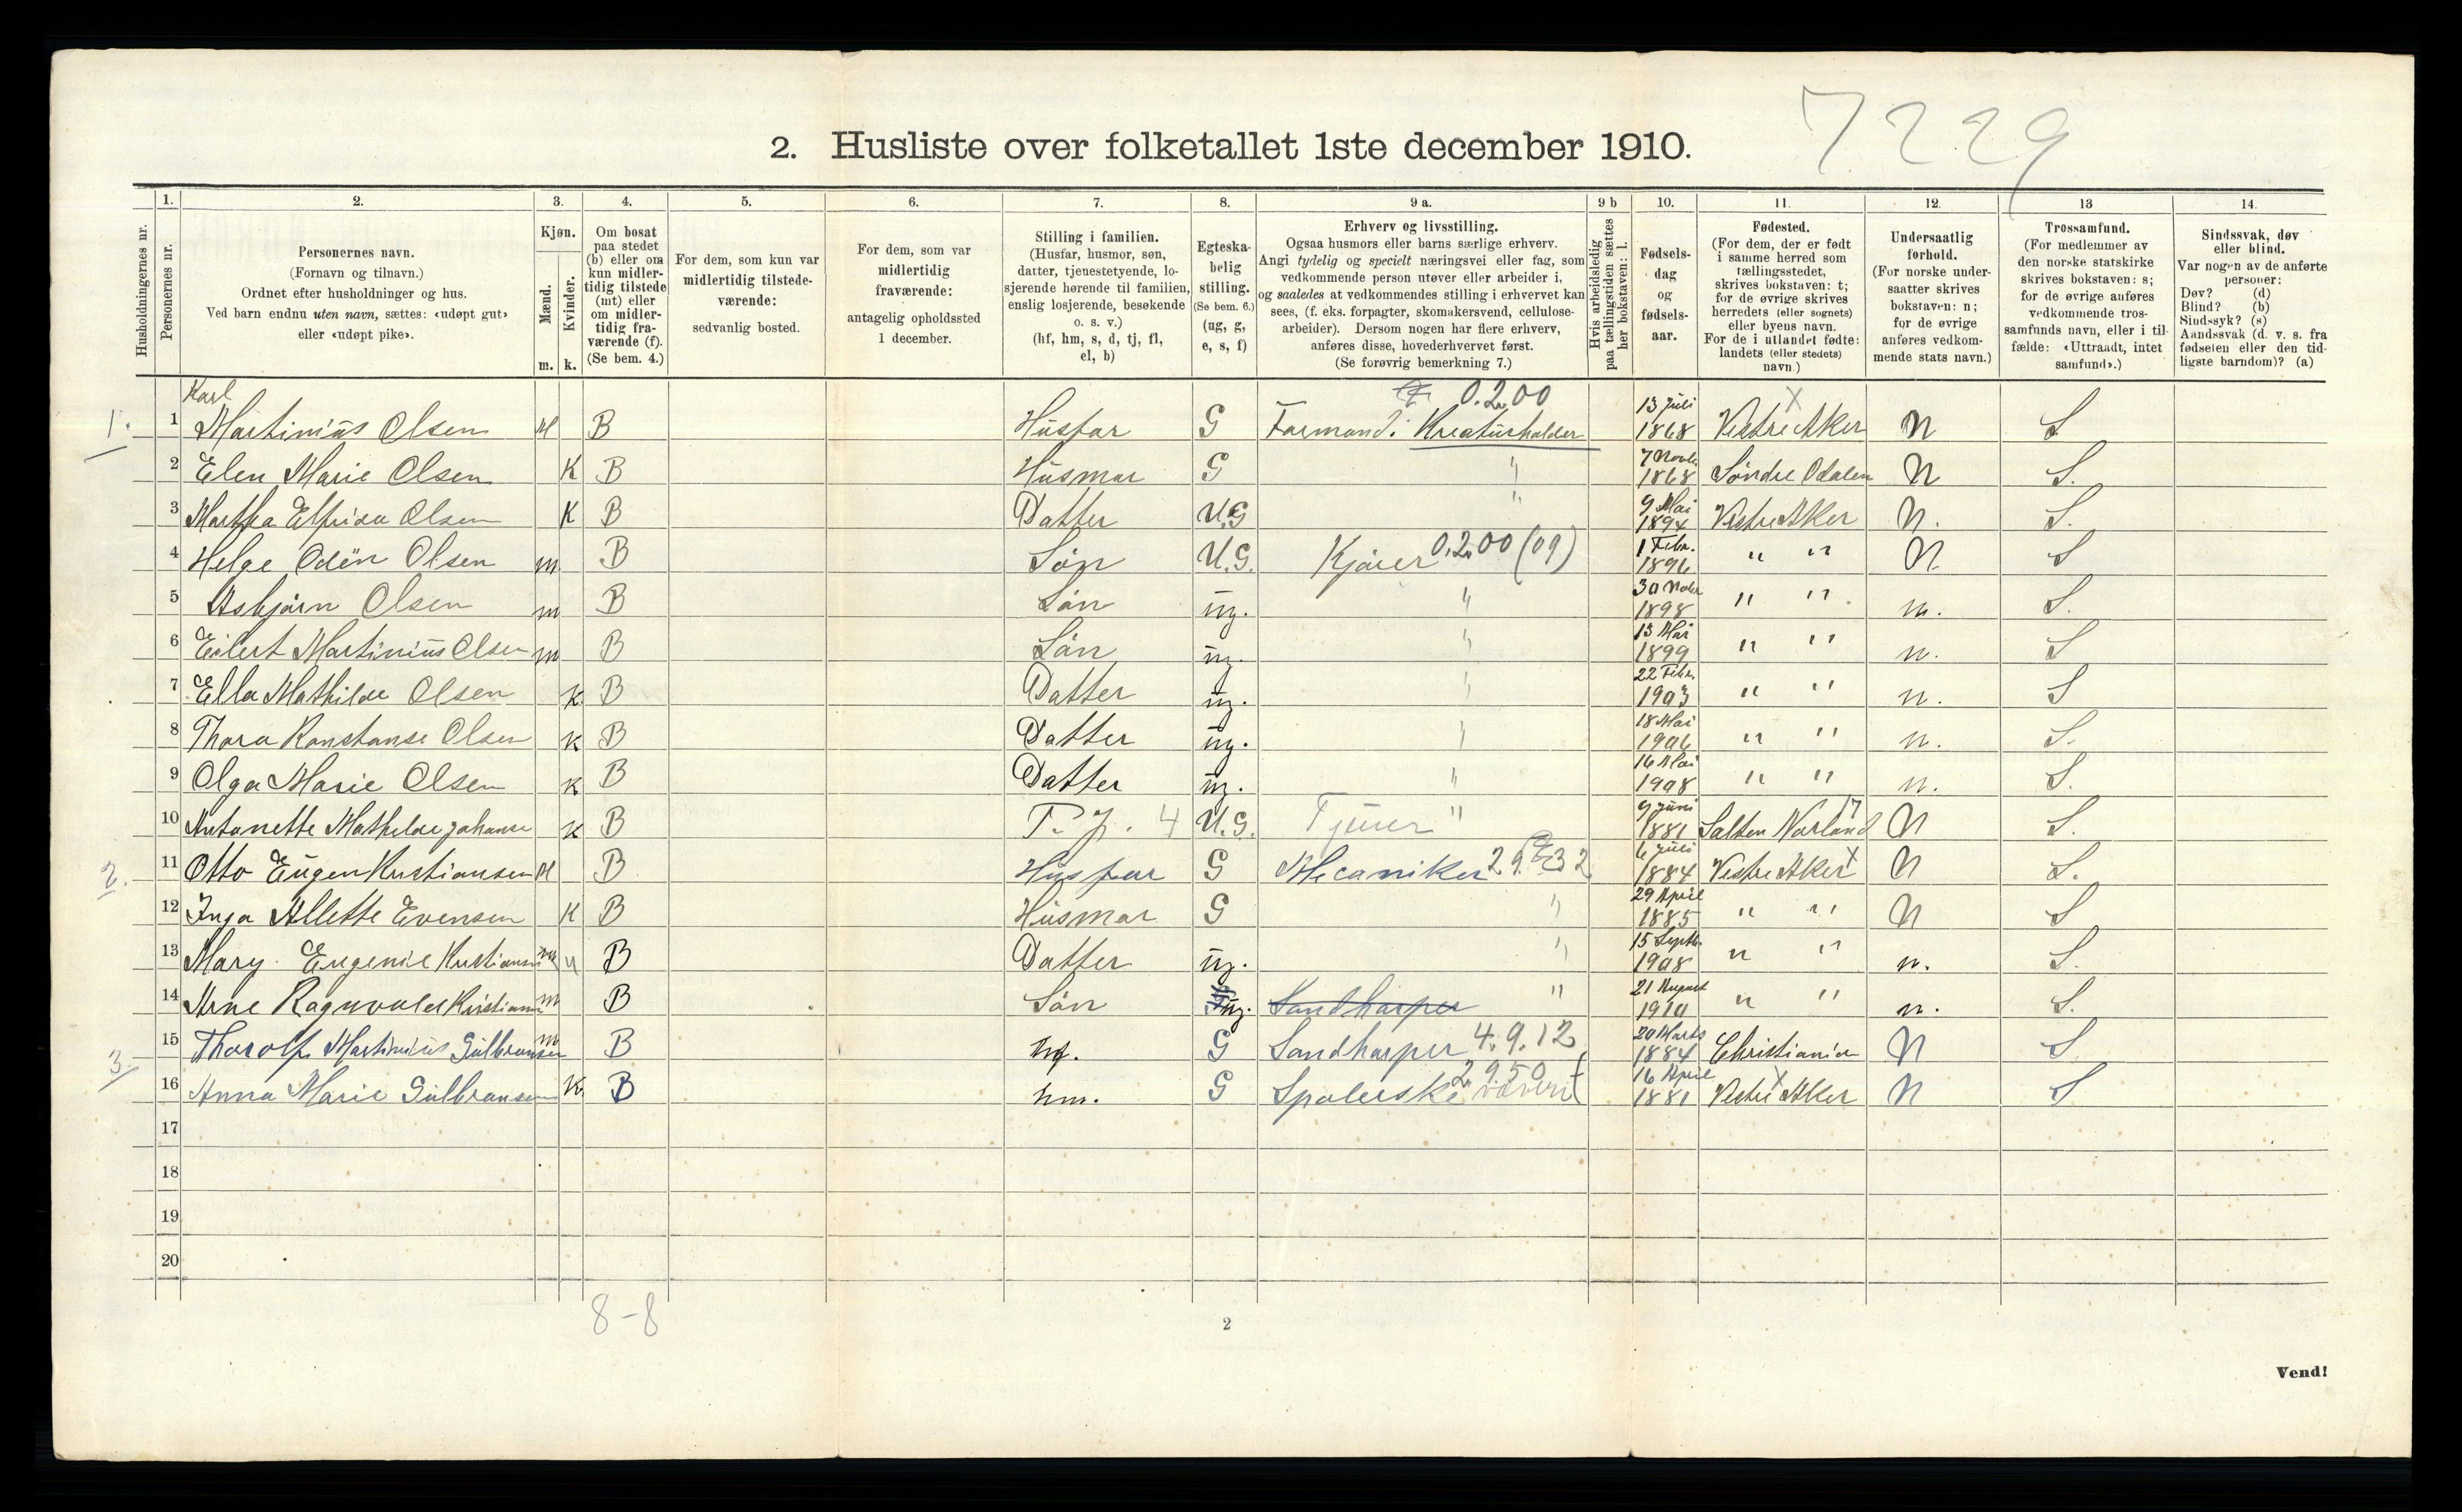 7229
2. Husliste over folketallet 1ste december 1910.
Husholdningernes nr.
1. Personernes nr.
2. Personernes navn.
(Fornavn og tilnavn.)
Ordnet efter husholdninger og hus.
Ved barn endnu uten navn, sættes: «udøpt gut»
eller «udøpt pike».
3. Kjøn.
Mænd. m.
Kvinder. k.
4. Om bosat
paa stedet
(b) eller om
kun midler-
tidig tilstede
(mt) eller
om midler-
tidig fra-
værende (f).
(Se bem. 4.)
5. For dem, som kun var
midlertidig tilstede-
værende:
sedvanlig bosted.
6. For dem, som var
midlertidig
fraværende:
antagelig opholdssted
1 december.
7. Stilling i familien.
(Husfar, husmor, søn,
datter, tjenestetyende, lo-
sjerende hørende til familien,
enslig losjerende, besøkende
o. s. v.)
(hf, hm, s, d, tj, fl,
el, b)
8. Egteska-
belig
stilling.
(Se bem. 6.)
(ug, g,
e, s, f)
9 a. Erhverv og livsstilling.
Ogsaa husmors eller barns særlige erhverv.
Angi tydelig og specielt næringsvei eller fag, som
vedkommende person utøver eller arbeider i,
og saaledes at vedkommendes stilling i erhvervet kan
sees, (f. eks. forpagter, skomakersvend, cellulose-
arbeider). Dersom nogen har flere erhverv,
anføres disse, hovederhvervet først.
(Se forøvrig bemerkning 7.)
9 b Hvis arbeidsledig
paa tællingstiden sættes
her bokstaven: l.
10. Fødsels-
dag
og
fødsels-
aar.
11. Fødested.
(For dem, der er født
i samme herred som
tællingsstedet,
skrives bokstaven: t;
for de øvrige skrives
herredets (eller sognets)
eller byens navn.
For de i utlandet fødte:
landets (eller stedets)
navn.)
12. Undersaatlig
forhold.
(For norske under-
saatter skrives
bokstaven: n;
for de øvrige
anføres vedkom-
mende stats navn.)
13 Trossamfund.
(For medlemmer av
den norske statskirke
skrives bokstaven: s;
for de øvrige anføres
vedkommende tros-
samfunds navn, eller i til-
fælde: «Uttraadt, intet
samfund».)
14. Sindssvak, døv
eller blind.
Var nogen av de anførte
personer:
Døv? (d)
Blind? (b)
Sindssyk? (s)
Aandssvak (d. v. s. fra
fødselen eller den tid-
ligste barndom)? (a)
Karl 0.2.00 13 Juli X
1. 1 Martinius Olsen M B Husfar G Formand i Kreaturhalder 1868 Vestre Aker N S
2 Elen Marie Olsen K B Husmor G " 7 Novb. 1868 Søndre Odalen N S.
3 Martha Elfrida Olsen K B Datter U.G " 9 Mai 1894 Vestre Aker N. S.
4 Helge Odin Olsen m B Søn U.G. Kjører 0.2.00 (09) 1 Febr. 1896 " " N S
5 Asbjørn Olsen m B Søn ug. " 30 Novbr 1898 " " n. S.
6 Eilert Martinius Olsen m B Søn ug. " 13 Mai 1899 " " n. S
7 Ella Mathilde Olsen k. B Datter ug. " 22 Febr. 1903 " " n. S
8 Thora Konstanse Olsen k B Datter ug. " 18 Mai 1906 " " n. S.
9 Olga Marie Olsen k B Datter ug. " 16 Mai 1908 " " n. S.
10 Antonette Mathilde Johanse k B T.J. 4 U.G. Tjener " 9 Juni 1881 Salten Norland 17 N S.
2. 11 Otto Eugen Kristiansen M B Husfar G Mecaniker 29.32 6 Juli 1884 Vestre Aker X N S.
12 Inga Allette Evensen K B Husmor G " 29 April 1885 " " N S
13 Mary Eugenie Kristianse k B Datter ug. " 15 Septb. 1908 " " n. S.
14 Arne Ragnvald Kristians m B Søn ug. Sandharper " 21 August 1910 " " n. S.
3 15 Thorolf Martinius Gulbransen m B hf. G Sandharper 4.9.12 20 Marts 1884 Christiania N S
16 Anna Marie Gulbransen K. B hm. G Spolerske 2.9.50 væveri t 16 April 1881 Vestre Aker X N S
17
18
19
20
8-8
2
Vend!